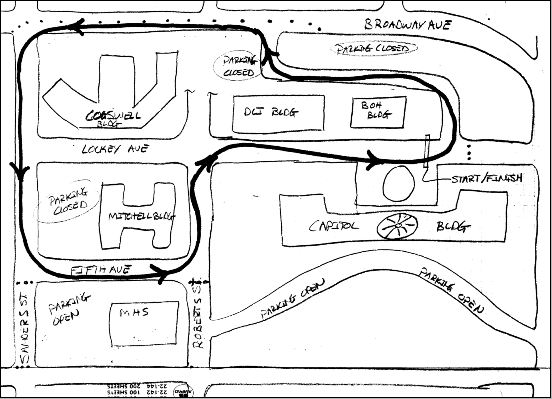 BROADWAY AVE
PARKING CLOSED
PARKING
CLOSED
COGSWELL
BLDG
DLI BLDG
BOH
BLDG
LOCKEY AVE
START/FINISH
PARKING
CLOSED
MITCHELL BLDG
CAPITOL BLDG
FIFTH AVE
PARKING
OPEN
MHS
PARKING OPEN
PARKING OPEN
SANDERS ST.
ROBERTS ST.
22-142 100 SHEETS
22-144 200 SHEETS